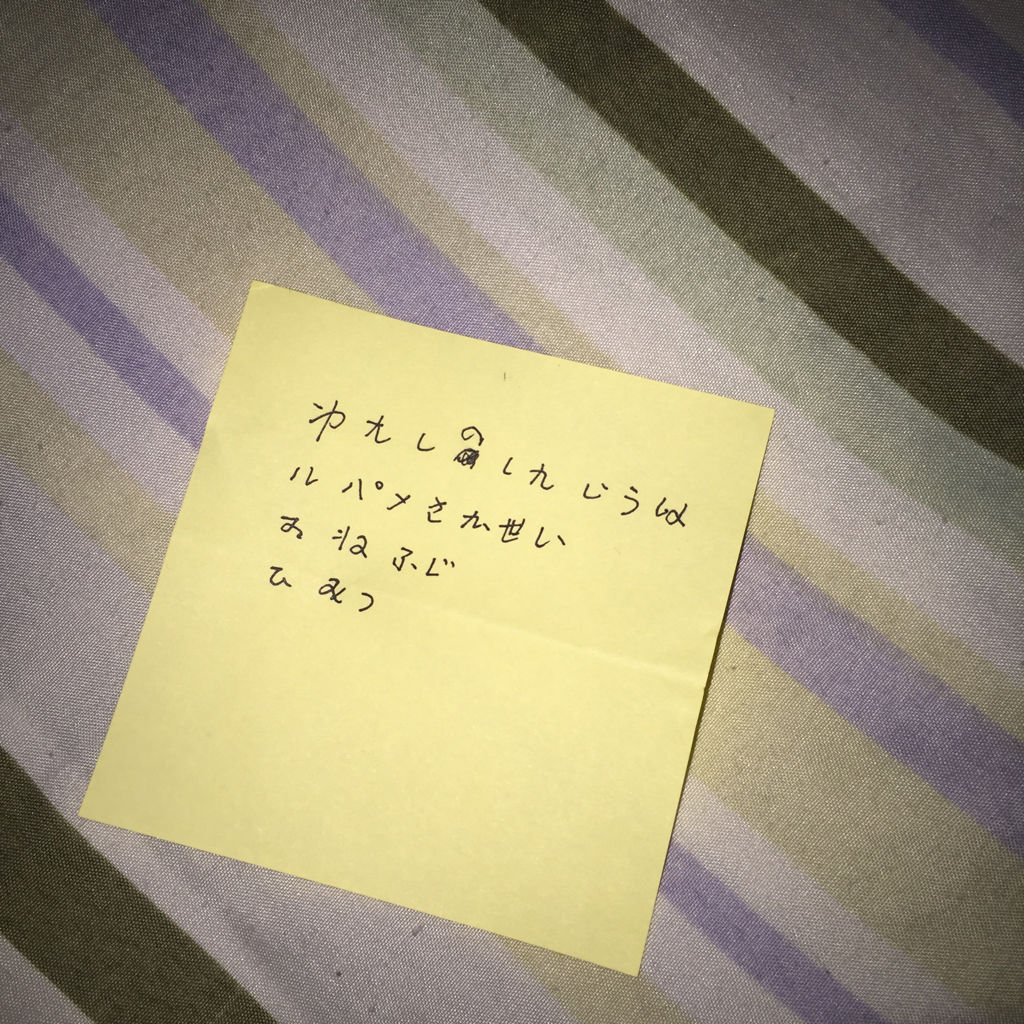 わたしのしたじうは
ルパメさかせい
おねふじ
ひみつ